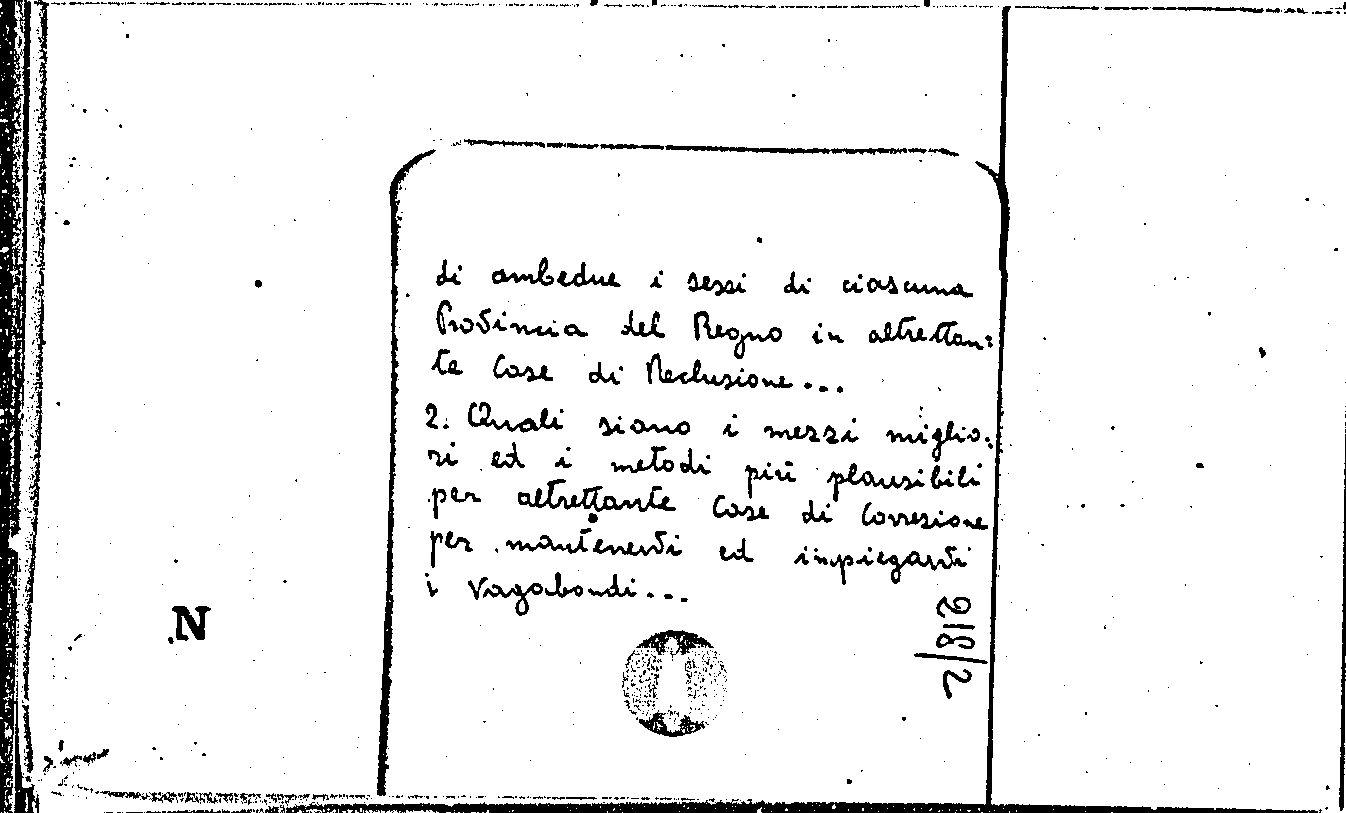 di ambedue i sessi di ciascuna
Provincia del Regno in altrettan:
te Case di Reclusione...
2. Quali siano i mezzi miglio:
ri ed i metodi più plausibili
per altrettante Case di Correzione
per mantenervi ed impiegarvi
i vagabondi...
N
218/2